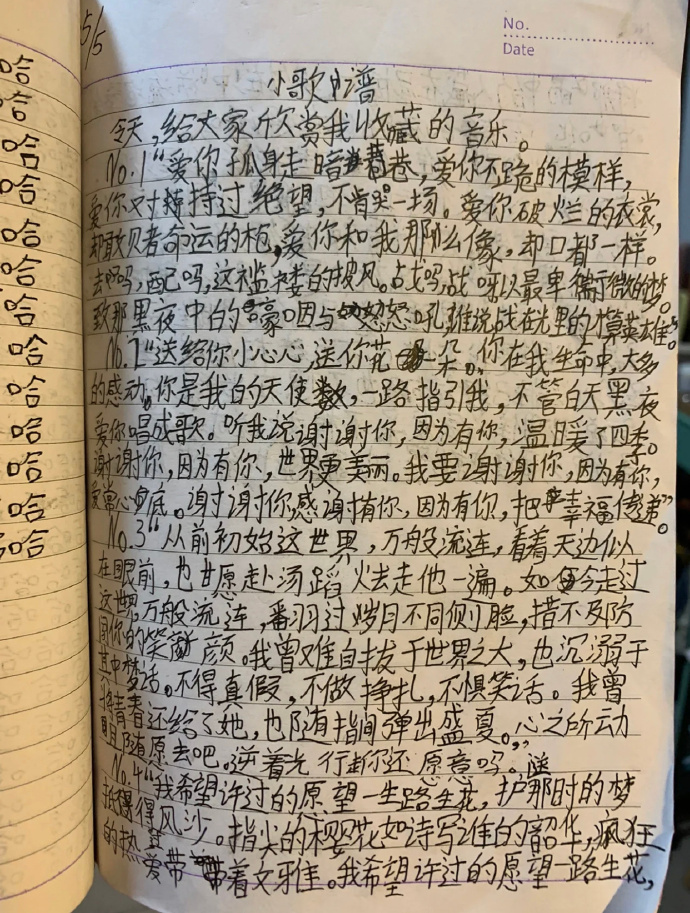 哈
哈
哈
哈
哈
哈
哈
哈
哈
哈
哈
哈
哈
5/5
No.
Date
小歌小谱
今天,给大家欣赏我收藏的音乐。
No.1“爱你孤身走暗巷,爱你不跪的模样,
爱你对持过绝望,不肯哭一场。爱你破烂的衣裳,
却敢贝者命运的枪,爱你和我那么像,却口都一样。
去吗,配吗,这褴褛的披风。战吗,战呀以最卑微的梦。
致那黑夜中的咽与怒吼谁说战在光里的算英雄”。
No.2“送给你小心心送你花一朵。你在我生命中,太多
的感动。你是我的天使,一路指引我,不管白天黑夜
爱你唱成歌。听我说谢谢你,因为有你,温暖了四季。
谢谢你,因为有你,世界更美丽。我要谢谢你,因为有你,
爱常心底。谢谢你感谢有你,因为有你,把幸福传递”。
No.3“从前初始这世界,万般流连,看着天边似
在眼前,也甘愿赴汤蹈火去走他一遍。如今走过
这世界万般流连,翻过岁月不同侧脸,措不及防
闯你的笑颜。我曾难自拔于世界之大,也沉溺于
其中梦话。不得真假,不做挣扎,不惧笑话。我曾
将青春还给了她,也随指间弹出盛夏。心之所动
随愿去吧。逆着光行走你还愿意吗。”
No.4“我希望许过的愿望一生路生花,护那时的梦
抵得风沙。指尖的樱花如诗写谁的韶华,疯狂
的热爱带着文雅。我希望许过的愿望一路生花,